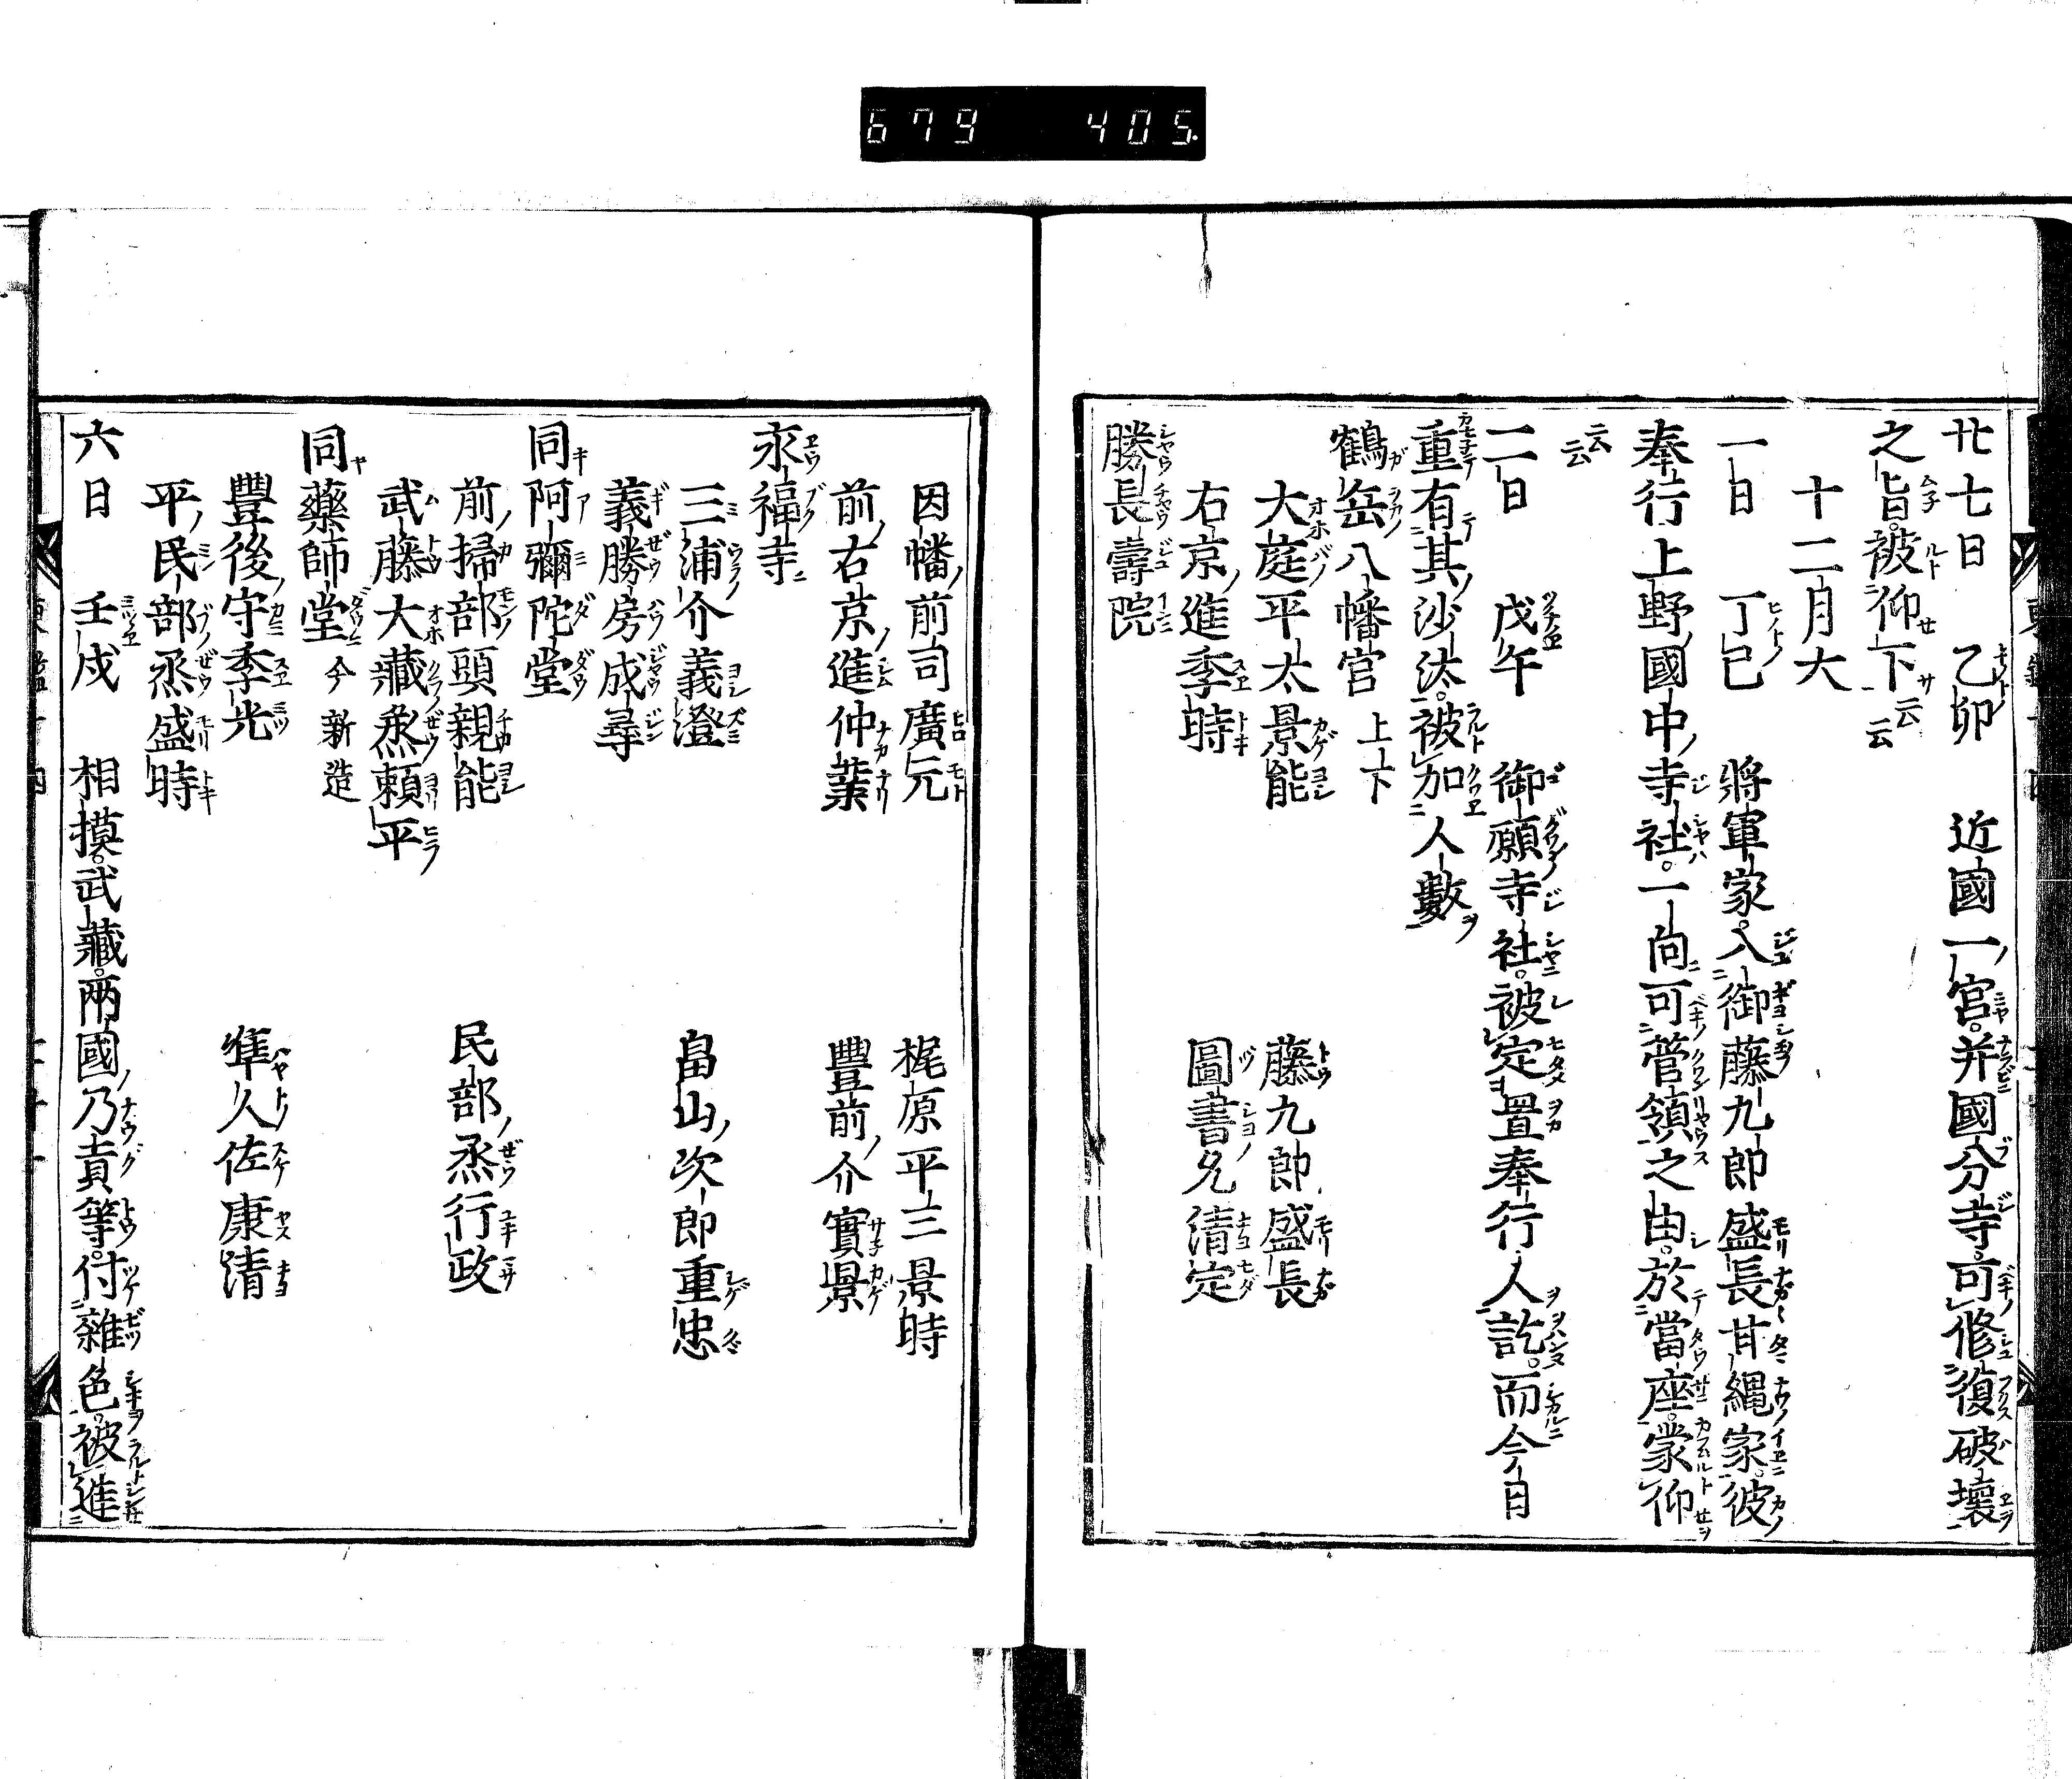 679 405
廿七日 乙卯 近國一宮。并國分寺。可修復破壞
之旨。被仰下云云
十二月大
一日 丁巳 將軍家。入御藤九郎盛長甘縄家。彼
奉行上野國中寺社。一向可管領之由。於當座蒙仰
云云
二日 戊午 御願寺社。被定置奉行人訖。而今日
重有其沙汰。被加人數
鶴岳八幡宮上下
大庭平太景能 藤九郎盛長
右京進季時 圖書允清定
勝長壽院
因幡前司廣元 梶原平三景時
前右京進仲業 豐前介實景
永福寺
三浦介義澄 畠山次郎重忠
義勝房成尋
同阿彌陀堂
前掃部頭親能 民部烝行政
武藤大藏烝頼平
同藥師堂今新造
豐後守季光 隼人佐康清
平民部烝盛時
六日 壬戌 相摸。武藏。兩國乃貢等。付雜色。被進